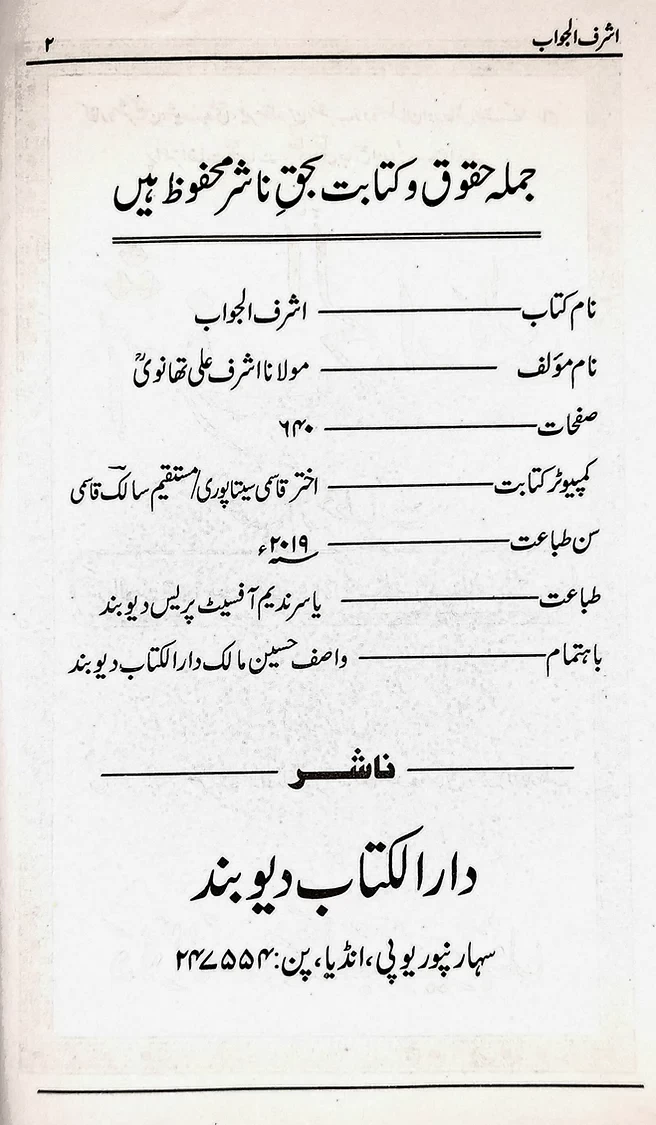 اشرف الجواب ۲
جملہ حقوق و کتابت بحقِ ناشر محفوظ ہیں
نام کتاب اشرف الجواب
نام مؤلف مولانا اشرف علی تھانویؒ
صفحات ۶۴۰
کمپیوٹر کتابت اختر قاسمی سیتاپوری/مستقیم سالکؔ قاسمی
سن طباعت ۲۰۱۹ء
طباعت یاسر ندیم آفسیٹ پریس دیوبند
باہتمام واصف حسین مالک دارالکتاب دیوبند
ناشر
دارالکتاب دیوبند
سہارنپور یوپی، انڈیا، پن: ۲۴۷۵۵۴